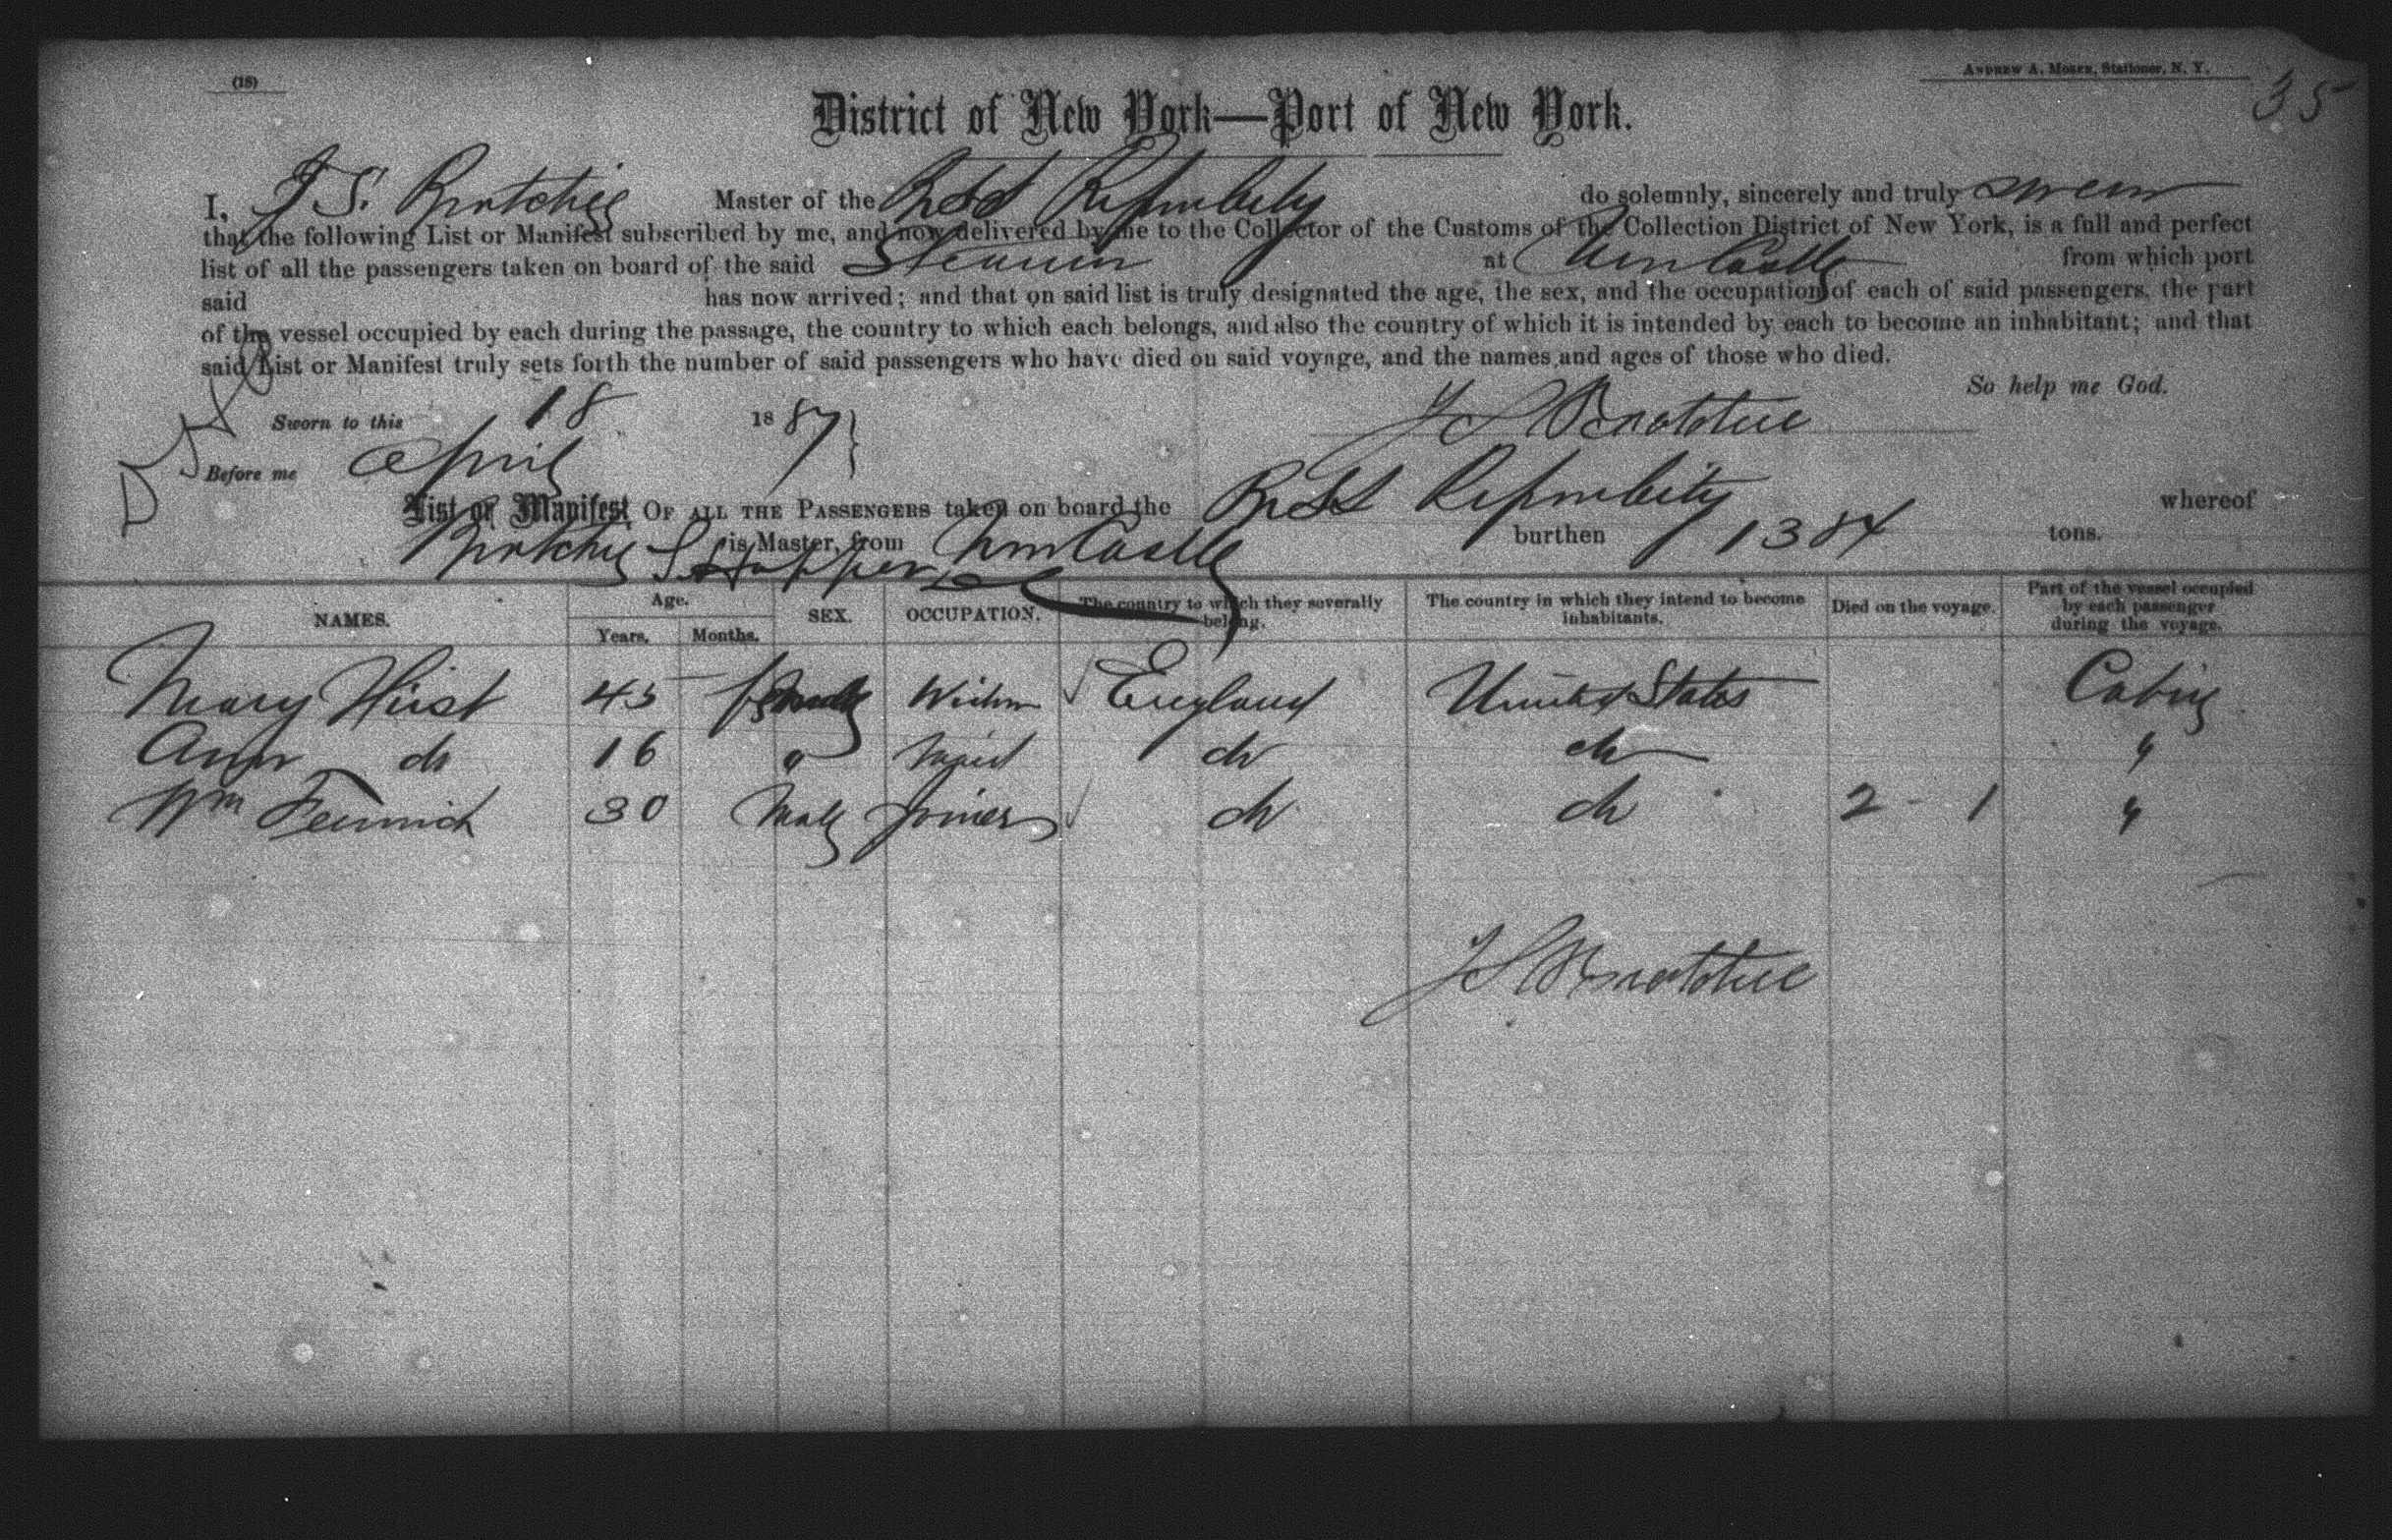 (18)
ANDREW A. MOSER, Stationer, N. Y.
35
District of New York—Port of New York.
I, J S. Master of the do solemnly, sincerely and truly swear
that the following List or Manifest subscribed by me, and now delivered by me to the Collector of the Customs of the Collection District of New York, is a full and perfect
list of all the passengers taken on board of the said Steamer at New Castle from which port
said has now arrived; and that on said list is truly designated the age, the sex, and the occupation of each of said passengers, the part
of the vessel occupied by each during the passage, the country to which each belongs, and also the country of which it is intended by each to become an inhabitant; and that
said List or Manifest truly sets forth the number of said passengers who have died on said voyage, and the names and ages of those who died.
So help me God.
Sworn to this 18 1887
Before me April
List or Manifest OF ALL THE PASSENGERS taken on board the whereof
is Master, from New Castle burthen 1384 tons.
NAMES. Age. Years. Months. SEX. OCCUPATION. The country to which they severally belong. The country in which they intend to become inhabitants. Died on the voyage. Part of the vessel occupied by each passenger during the voyage.
Mary Hirst 45 female Widow England United States Cabin
Ann do 16 " Maid do do "
Wm Fenwick 30 Male Joiner do do 2 - 1 "